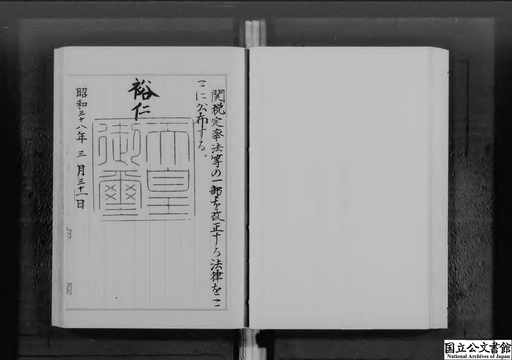 関税定率法等の一部を改正する法律をこ
こに公布する。
裕仁
天皇
御璽
昭和三十八年三月三十一日
国立公文書館
National Archives of Japan